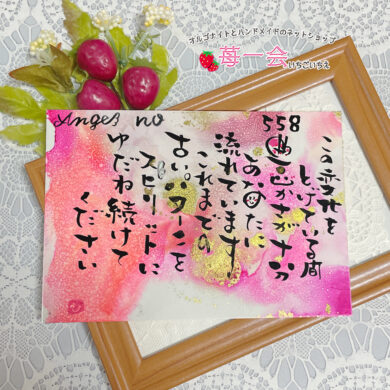 オルゴナイトとハンドメイドのネットショップ
苺一会いちごいちえ
558
この変化を
とげている間
豊かさが十分
あなたに
流れています。
これまでの
古いパターンを
スピリットに
ゆだね続けて
ください